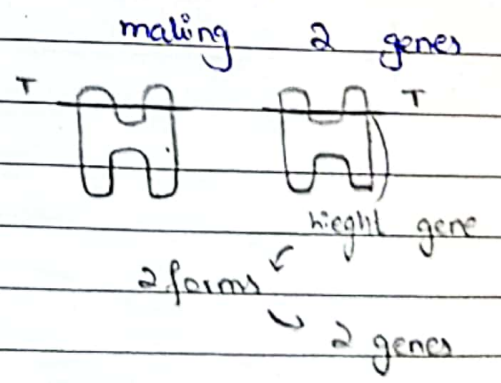 making 2 genes
T T
hieght gene
2 forms
2 genes